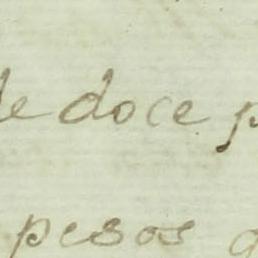 de doce p
pesos